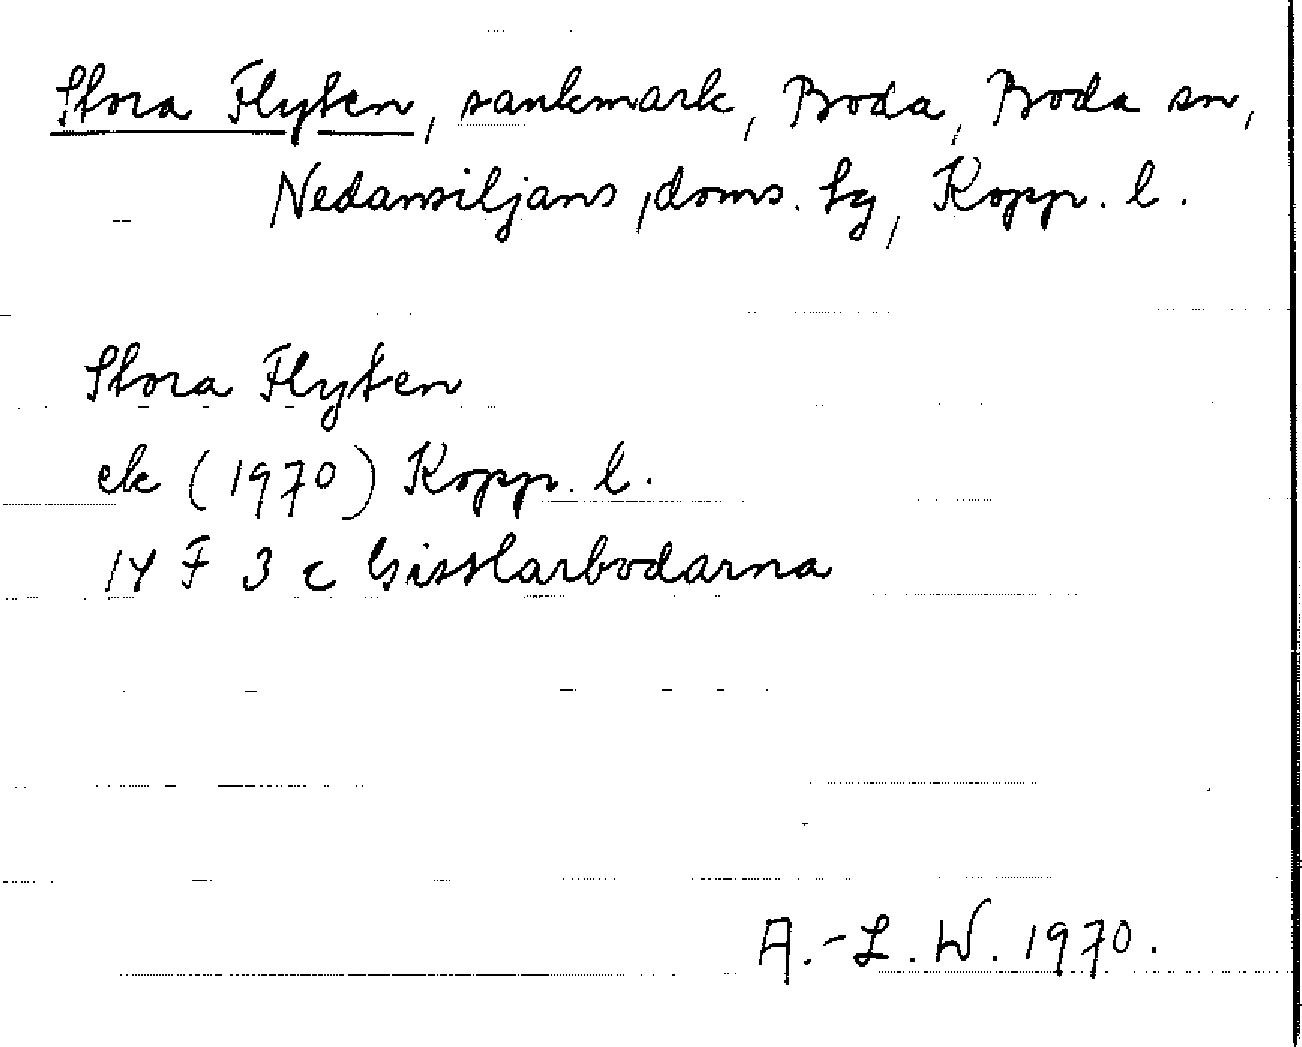 Stora Flyten, sankmark, Boda, Boda sn,
Nedansiljans, doms. hg, Kopp. l.
Stora Flyten
ek (1970) Kopp. l.
14 F 3 c Gisslarbodarna
A.-L. W. 1970.